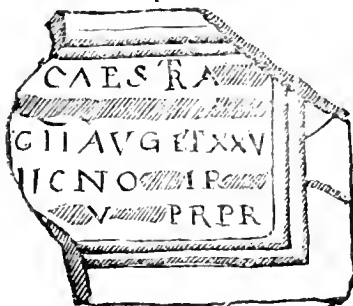 CAES TRA
G II AVG ET XX V
II C NO IP
V PR PR